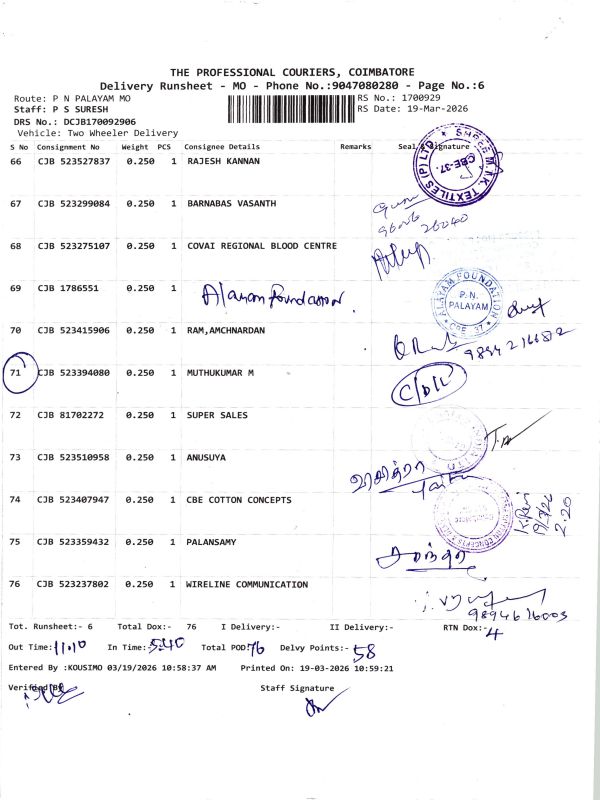 THE PROFESSIONAL COURIERS, COIMBATORE
Delivery Runsheet - MO - Phone No.:9047080280 - Page No.:6
Route: P N PALAYAM MO
RS No.: 1700929
Staff: P S SURESH
RS Date: 19-Mar-2026
DRS No.: DCJB170092906
Vehicle: Two Wheeler Delivery
S No Consignment No Weight PCS Consignee Details Remarks Seal & Signature
66 CJB 523527837 0.250 1 RAJESH KANNAN
SHREE M.T.K. TEXTILES (P) LTD. CBE-37.
67 CJB 523299084 0.250 1 BARNABAS VASANTH
68 CJB 523275107 0.250 1 COVAI REGIONAL BLOOD CENTRE
69 CJB 1786551 0.250 1 Alayam Foundation.
ALAYAM FOUNDATION P.N. PALAYAM CBE - 37
70 CJB 523415906 0.250 1 RAM,AMCHNARDAN
71 CJB 523394080 0.250 1 MUTHUKUMAR M
72 CJB 81702272 0.250 1 SUPER SALES
73 CJB 523510958 0.250 1 ANUSUYA
74 CJB 523407947 0.250 1 CBE COTTON CONCEPTS
75 CJB 523359432 0.250 1 PALANSAMY
76 CJB 523237802 0.250 1 WIRELINE COMMUNICATION
9894616003
Tot. Runsheet:- 6 Total Dox:- 76 I Delivery:- II Delivery:- RTN Dox:- 4
Out Time: 11.10 In Time:- 5.40 Total POD: 76 Delvy Points:- 58
Entered By :KOUSIMO 03/19/2026 10:58:37 AM Printed On: 19-03-2026 10:59:21
Verified By
Staff Signature